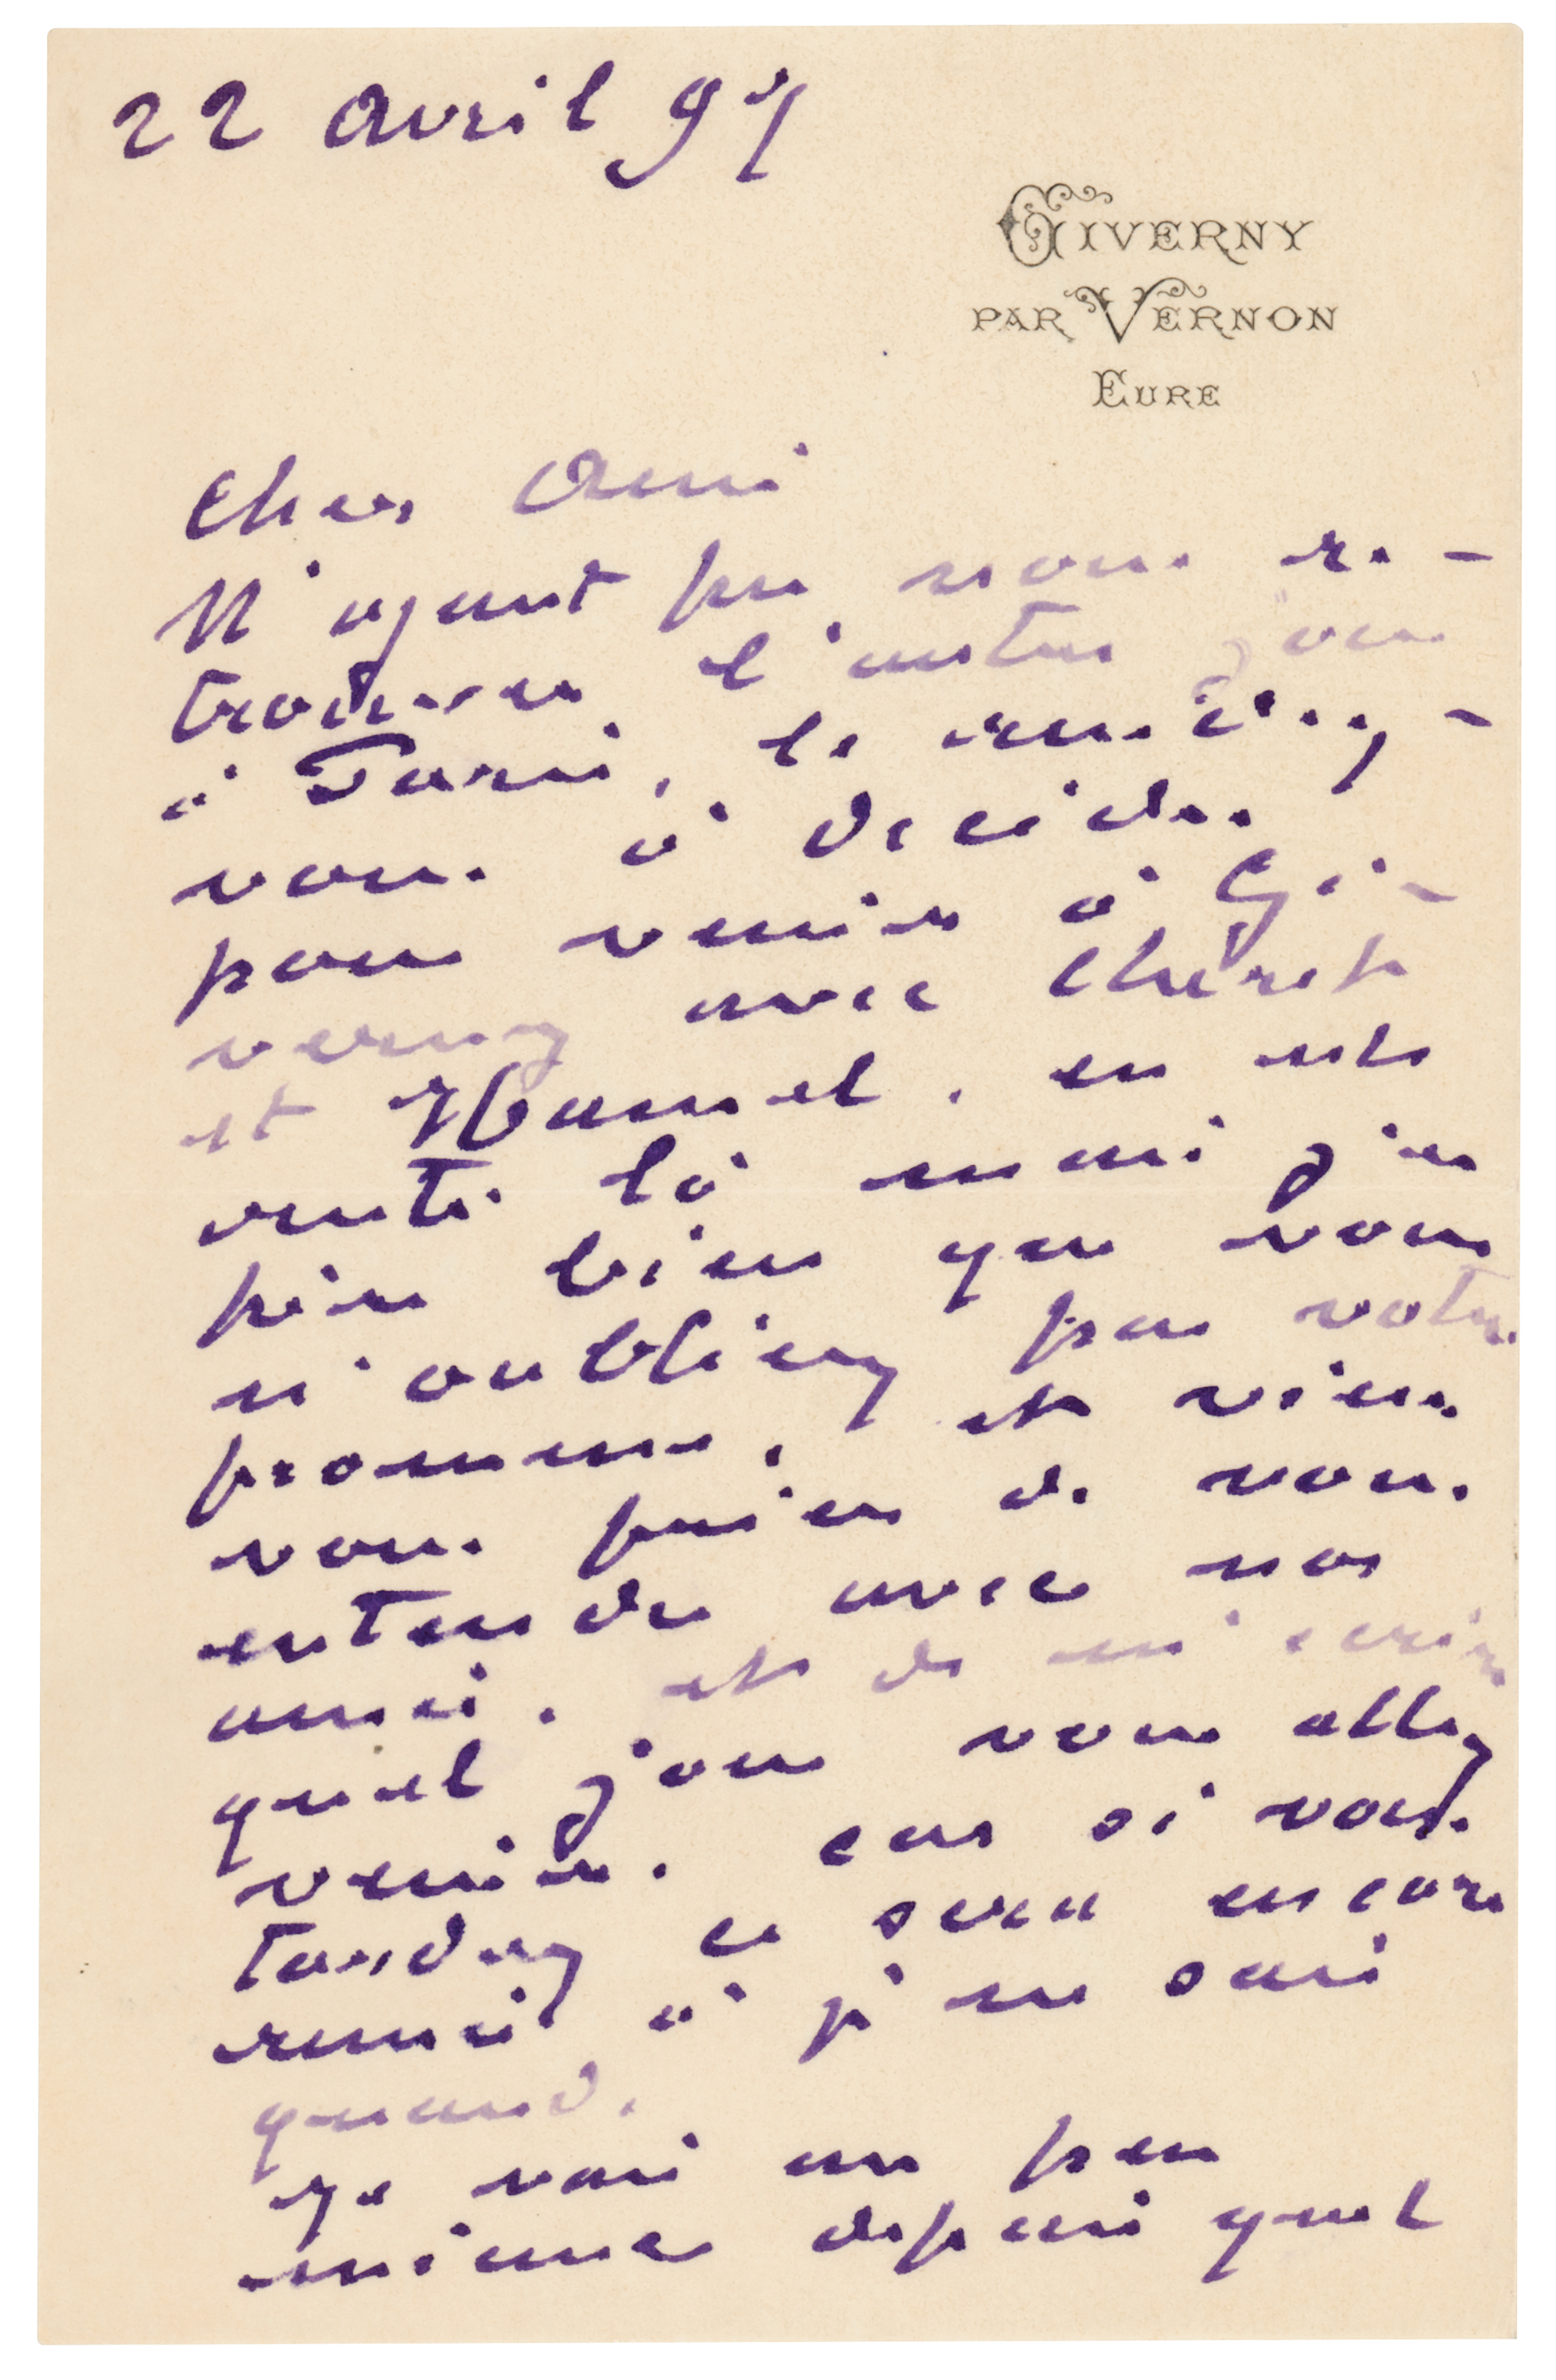 22 avril 97
GIVERNY
PAR VERNON
EURE
Cher ami
N'ayant pu nous re-
trouver l'autre jour
à Paris,
vous à décider
pour venir à Gi-
verny avec Chéret
et Hamel.
là mais j'es
père bien que vous
n'oubliez pas votre
promesse, et viens
vous prier de vous
entendre avec nos
amis, et de m'écrire
quel jour vous allez
venir. car si vous
tardez ce sera encore
remis à je ne sais
quand.
Je vais un peu
mieux depuis quel